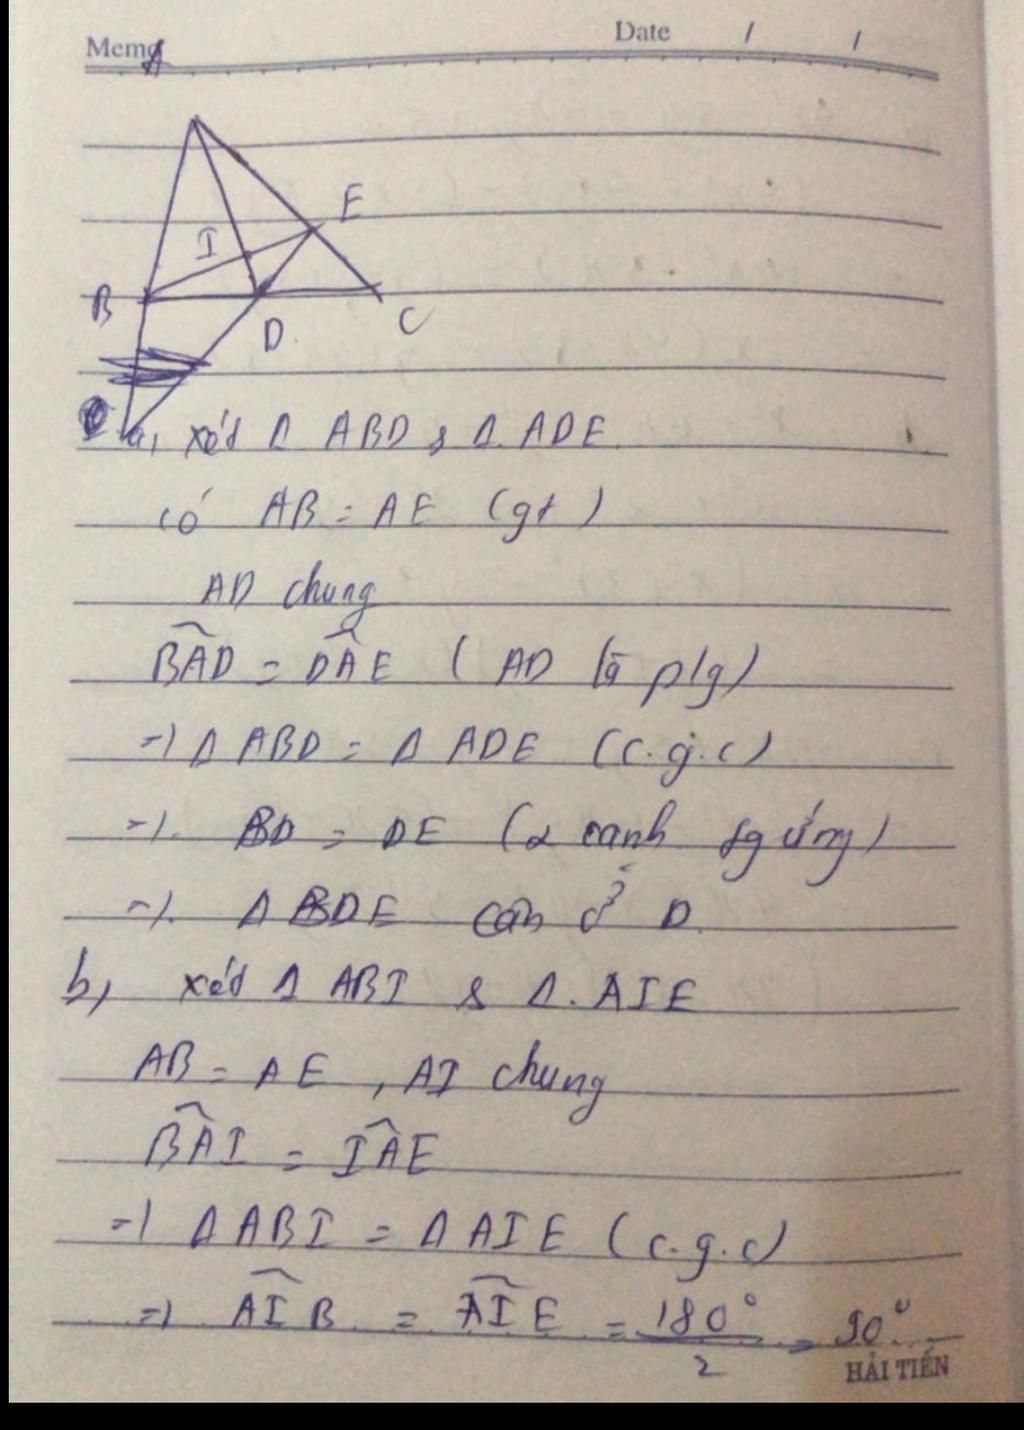 Memo
Date / /
A
E
I
B
D
C
a, xét Δ ABD & Δ ADE
có AB = AE (gt)
AD chung
BAD = DAE ( AD là p/g)
=) Δ ABD = Δ ADE (c.g.c)
=). BD = DE (2 cạnh tg ứng)
=). Δ BDE cân ở D.
b, xét Δ ABI & Δ. AIE
AB = AE , AI chung
BAI = IAE
=) Δ ABI = Δ AIE ( c.g.c)
=) AIB = AIE = 180° / 2 = 90°
HẢI TIẾN